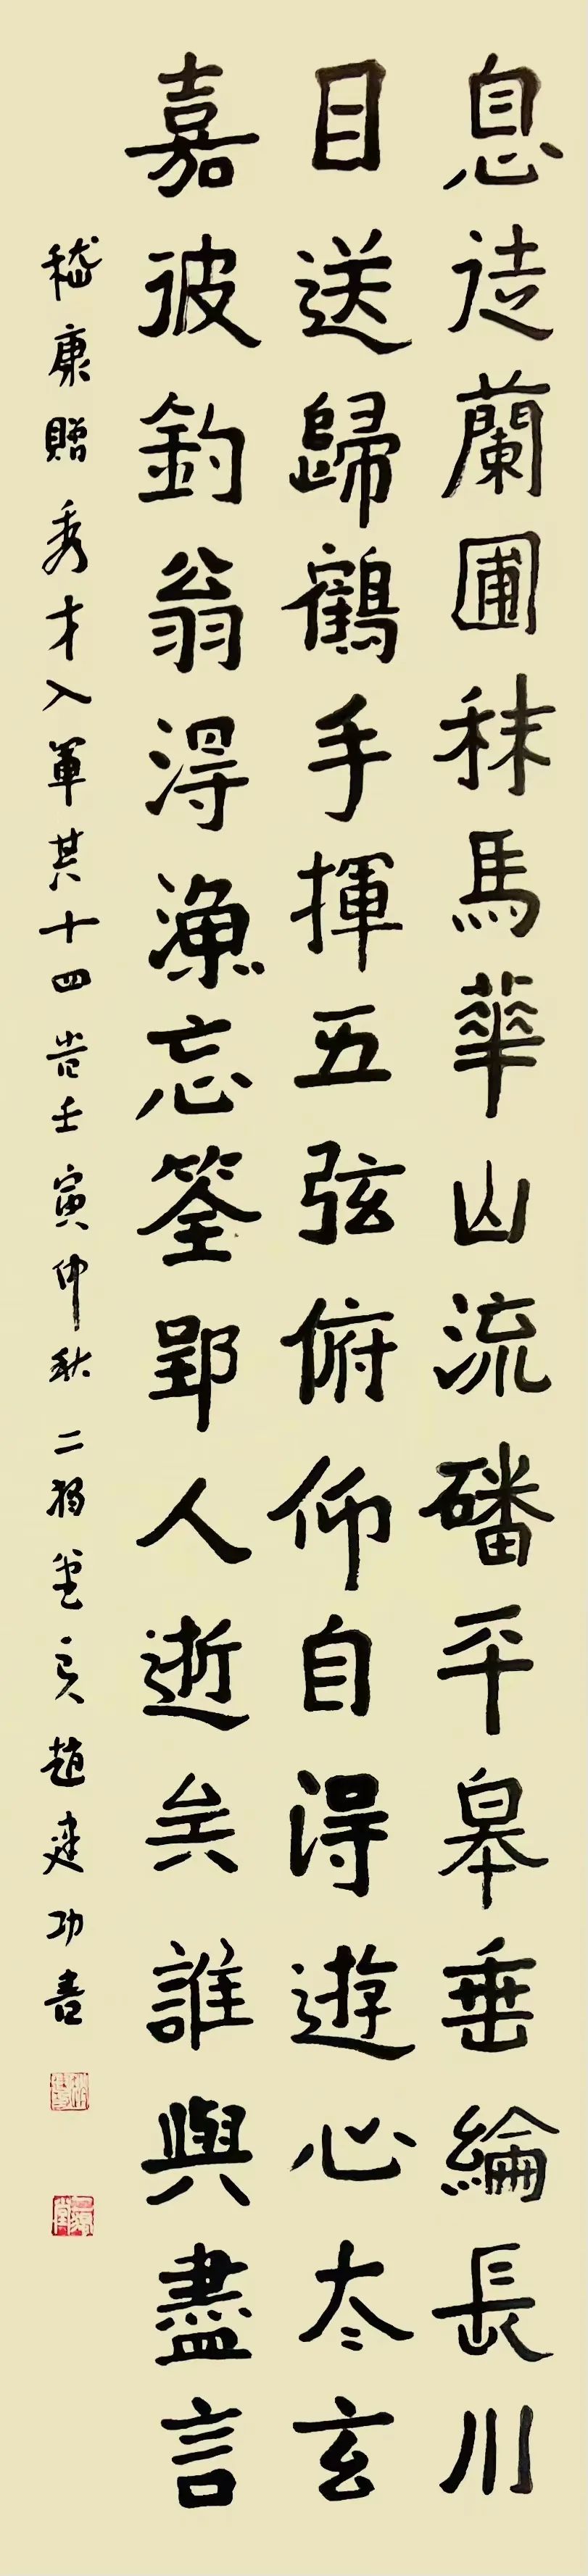 息徒蘭圃秣馬華山流磻平皋垂綸長川
目送歸鶴手揮五弦俯仰自得遊心太玄
嘉彼釣翁得漁忘筌郢人逝矣誰與盡言
嵇康贈秀才入軍其十四 岂壬寅仲秋 二獨堂主人趙建功書